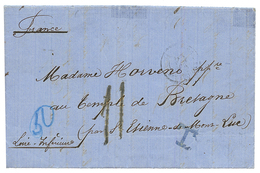 France
Madame Horveno ppre
au Temple de Bretagne
(par St Etienne-de-Mont Luc)
Loire-Inférieure